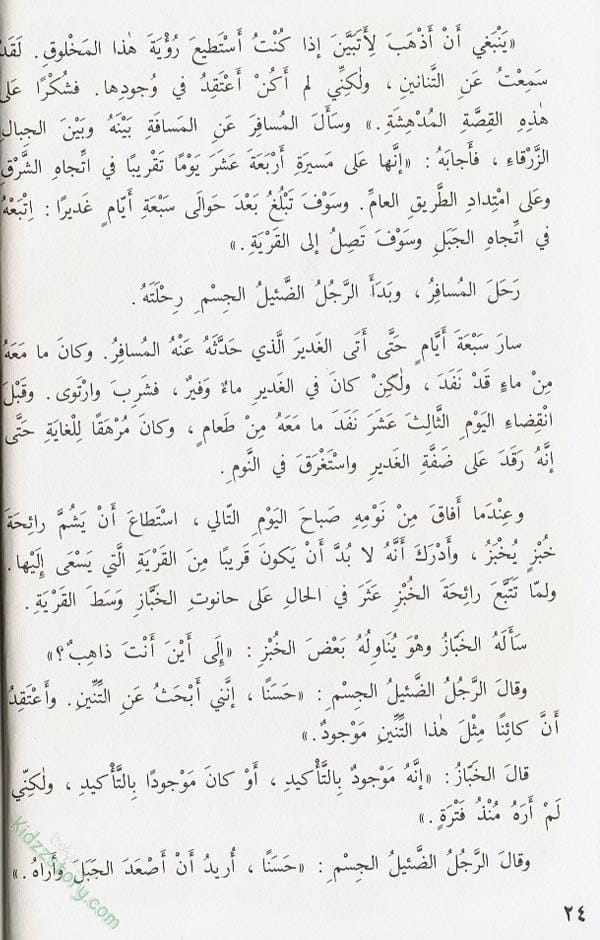 «يَنْبَغي أَنْ أَذْهَبَ لِأَتَبَيَّنَ إذا كُنْتُ أَسْتَطيعُ رُؤْيَةَ هٰذا المَخْلوقِ. لَقَدْ
سَمِعْتُ عَنِ التَّنانينِ ، ولٰكِنِّي لم أَكُنْ أَعْتَقِدُ في وُجودِها. فشُكْرًا على
هٰذِهِ القِصَّةِ المُدْهِشَةِ.» وسَأَلَ المُسافِرَ عَنِ المَسافَةِ بَيْنَهُ وبَيْنَ الجِبالِ
الزَّرْقاءِ ، فَأَجابَهُ : «إنَّها عَلى مَسيرَةِ أَرْبَعَةَ عَشَرَ يَوْمًا تَقْريبًا في اتِّجاهِ الشَّرْقِ
وعَلى امْتِدادِ الطَّريقِ العامِّ. وسَوْفَ تَبْلُغُ بَعْدَ حَوالَى سَبْعَةِ أَيّامٍ غَديرًا : اِتْبَعْهُ
في اتِّجاهِ الجَبَلِ وسَوْفَ تَصِلُ إلى القَرْيَةِ.»
رَحَلَ المُسافِرُ ، وبَدَأَ الرَّجُلُ الضَّئيلُ الجِسْمِ رِحْلَتَهُ.
سارَ سَبْعَةَ أَيّامٍ حَتَّى أَتَى الغَديرَ الَّذي حَدَّثَهُ عَنْهُ المُسافِرُ. وكانَ ما مَعَهُ
مِنْ ماءٍ قَدْ نَفَدَ ، ولٰكِنْ كانَ في الغَديرِ ماءٌ وَفيرٌ ، فشَرِبَ وارْتَوى. وقَبْلَ
انْقِضاءِ اليَوْمِ الثَّالِثَ عَشَرَ نَفَدَ ما مَعَهُ مِنْ طَعامٍ ، وكانَ مُرْهَقًا لِلْغايَةِ حَتَّى
إنَّهُ رَقَدَ عَلى ضَفَّةِ الغَديرِ واسْتَغْرَقَ في النَّومِ.
وعِنْدَما أَفاقَ مِنْ نَوْمِهِ صَباحَ اليَوْمِ التّالي ، اسْتَطاعَ أَنْ يَشُمَّ رائِحَةَ
خُبْزٍ يُخْبَزُ ، وأَدْرَكَ أَنَّهُ لا بُدَّ أَنْ يَكونَ قَريبًا مِنَ القَرْيَةِ الَّتي يَسْعَى إلَيْها.
ولمّا تَتَبَّعَ رائِحَةَ الخُبْزِ عَثَرَ في الحالِ عَلى حانوتِ الخَبَّازِ وَسَطَ القَرْيَةِ.
سَأَلَهُ الخَبَّازُ وهْوَ يُناوِلُهُ بَعْضَ الخُبْزِ : «إِلَى أَيْنَ أَنْتَ ذاهِبٌ؟»
وقالَ الرَّجُلُ الضَّئيلُ الجِسْمِ : «حَسَنًا ، إنَّني أَبْحَثُ عَنِ التِّنّينِ. وأَعْتَقِدُ
أَنَّ كائِنًا مِثْلَ هٰذا التِّنّينِ مَوْجودٌ.»
قالَ الخَبَّازُ : «إنَّهُ مَوْجودٌ بِالتَّأْكيدِ ، أَوْ كانَ مَوْجودًا بِالتَّأْكيدِ ، ولٰكِنّي
لَمْ أَرَهُ مُنْذُ فَتْرَةٍ.»
وقالَ الرَّجُلُ الضَّئيلُ الجِسْمِ : «حَسَنًا ، أُريدُ أَنْ أَصْعَدَ الجَبَلَ وأَراهُ.»
٢٤
KidzzStory.com